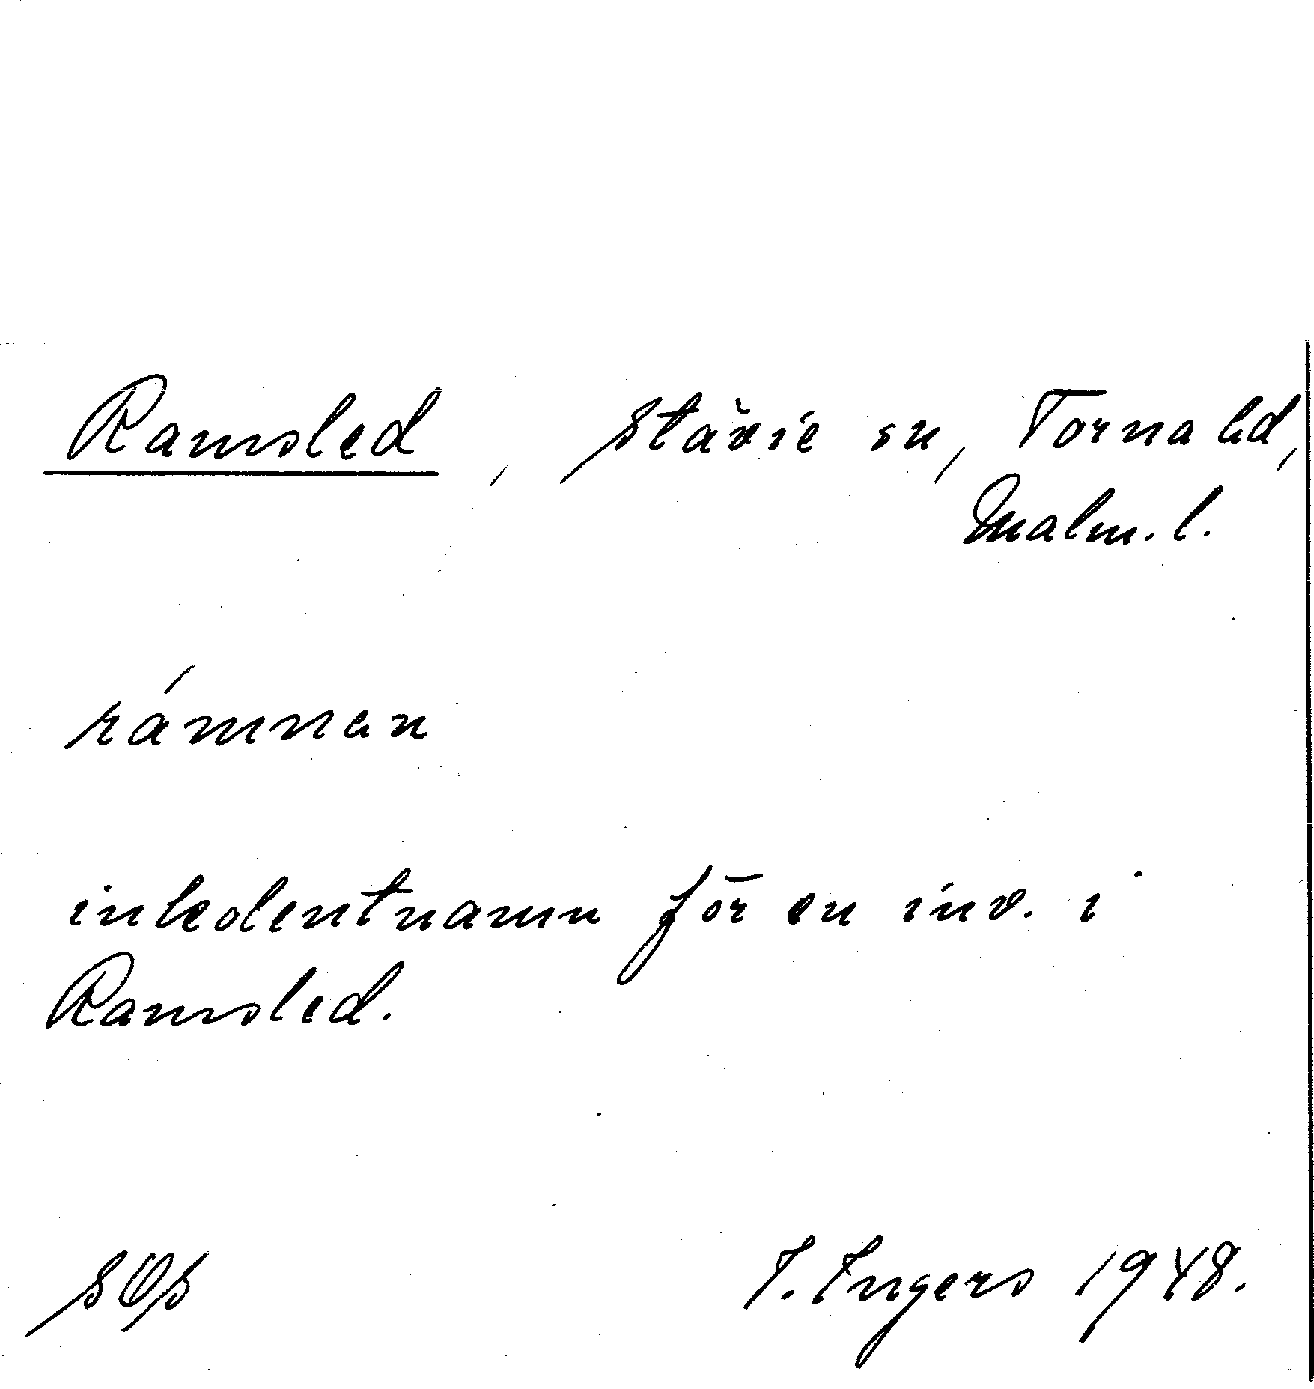 Ramsled, Stävie sn, Torna hd,
Malm. l.
rámnan
öknamn för en inv. i
Ramsled.
I. Ingers 1948.